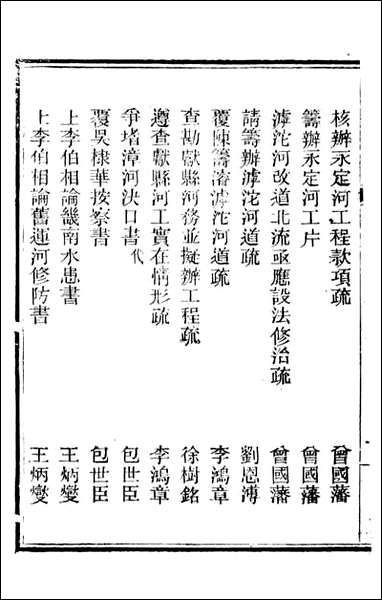 核辦永定河工程款項疏　曾國藩
籌辦永定河工片　曾國藩
滹沱河改道北流亟應設法修治疏　曾國藩
請籌辦滹沱河道疏　劉恩溥
覆陳籌濬滹沱河道疏　李鴻章
查勘獻縣河務並擬辦工程疏　徐樹銘
遵查獻縣河工實在情形疏　李鴻章
爭堵漳河決口書代　包世臣
覆吳棣華按察書　包世臣
上李伯相論畿南水患書　王炳燮
上李伯相論舊運河修防書　王炳燮